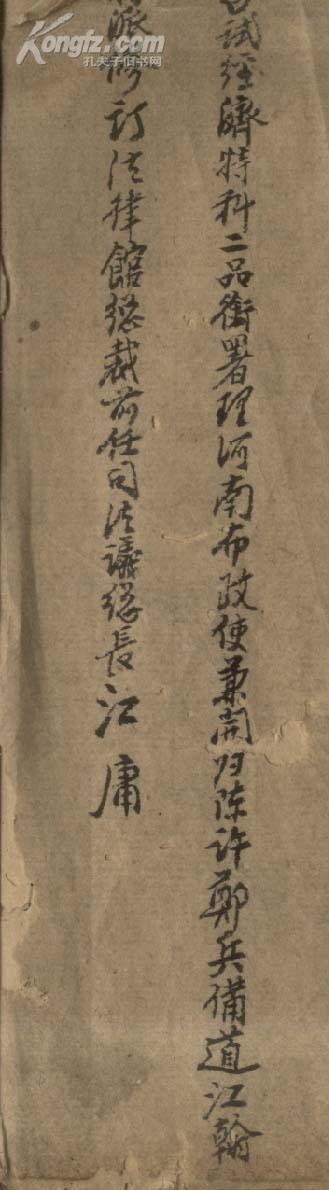 Kongfz.com
孔夫子旧书网
召试经济特科二品衔署理河南布政使兼開归陈许鄭兵備道江翰
派修訂法律館總裁前任司法議總長江庸